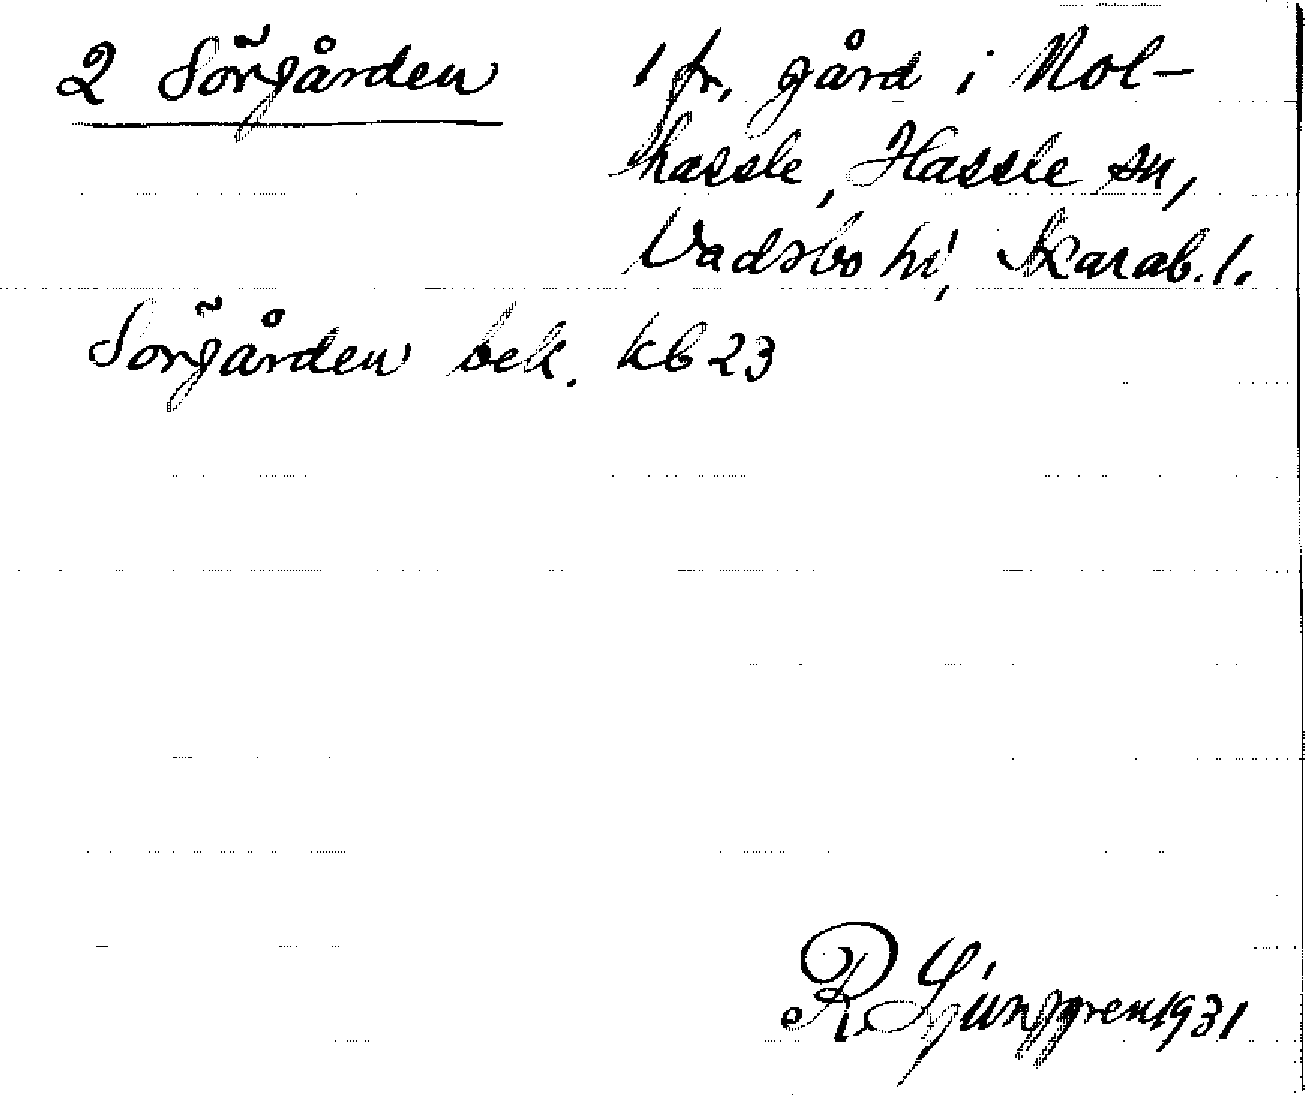 2 Sörgården
1 fr. gård i Nol-
hassle, Hassle sn,
Vadsbo hd, Skarab. l.
Sörgården bek. kb 23
R Ljunggren 1931